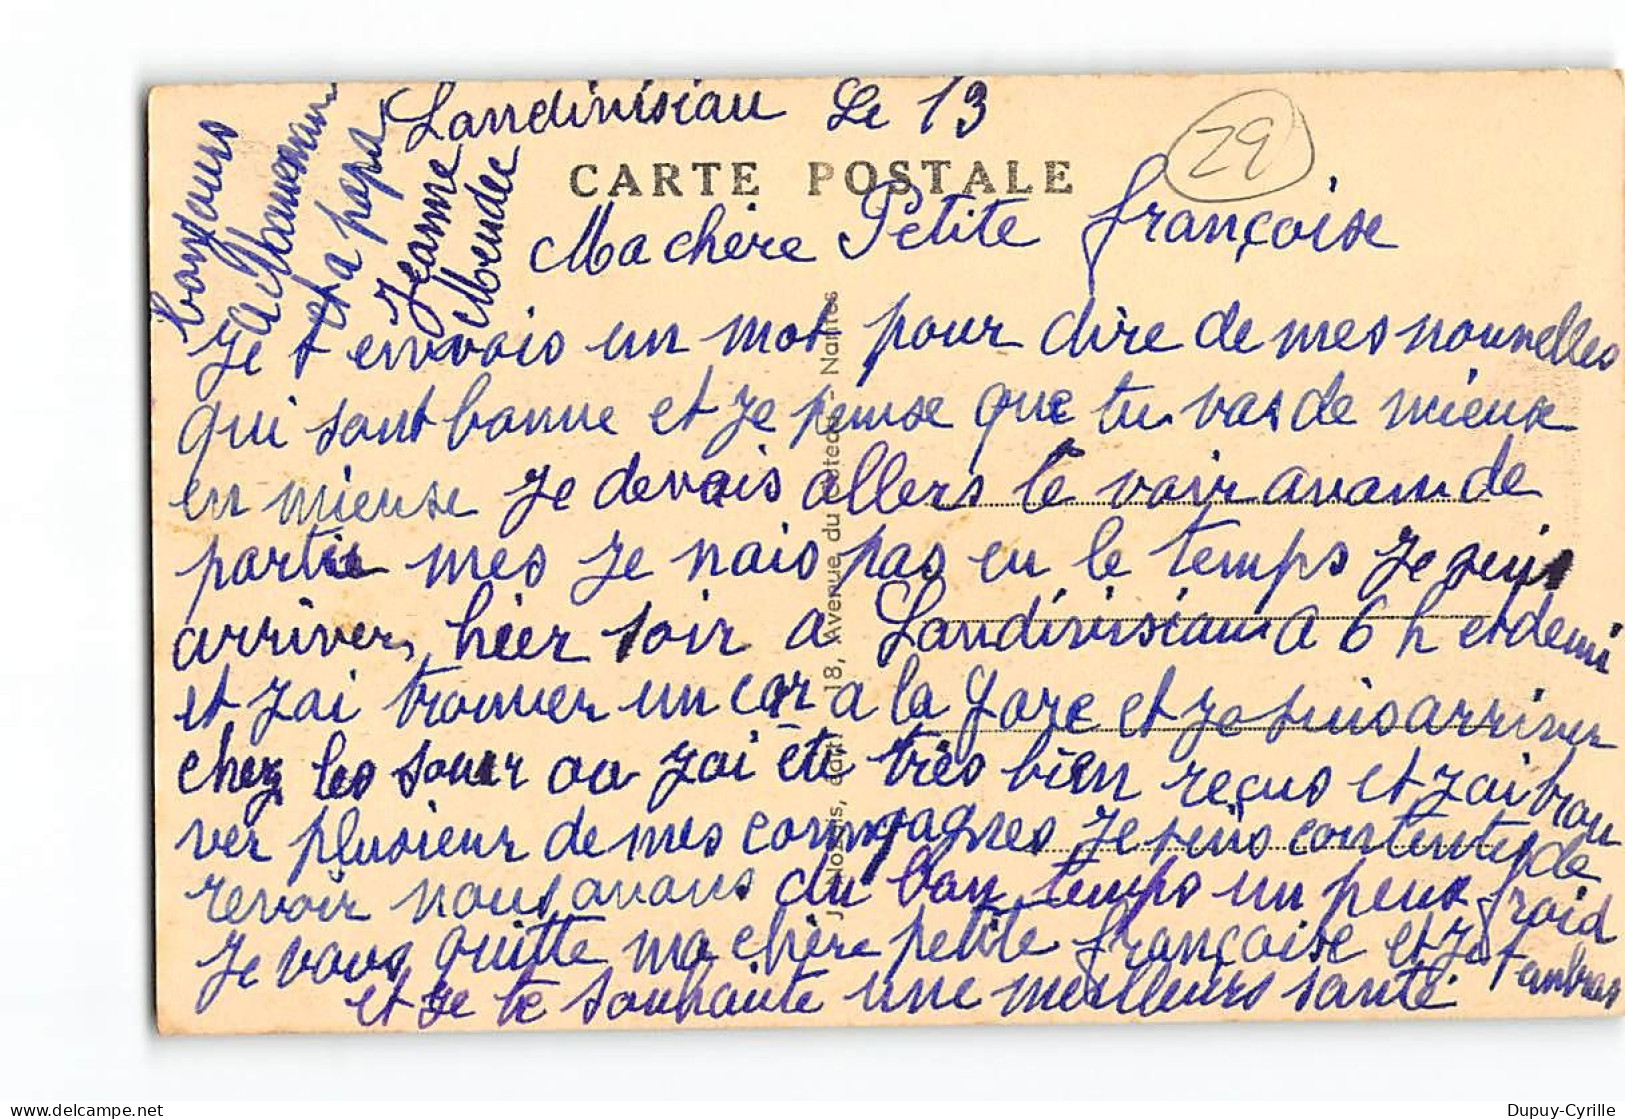 Landivisiau Le 13
29
CARTE POSTALE
bonjours
a Maman
et a papa
Jeanne
Ma chère Petite françoise
Je t envois un mot pour dire de mes nouvelles
qui sont bonne et Je pense que tu vas de mieux
en mieuse Je devais allers te voir avant de
partie mes Je nais pas eu le temps Je suis
arriver hier soir a Landivisiau a 6 h et demi
et Jai trouver un car a la gare et Je suis arriver
chez les soeur ou Jai été très bien reçus et Jai trou
ver plusieur de mes compagnes Je suis contente de
revoir nous avons du bon temps un peux froid
Je vous quitte ma chère petite françoise et Je t'enbras
et Je te souhaite une meilleurs santé
18, Avenue du Coteau - Nantes
Dupuy-Cyrille